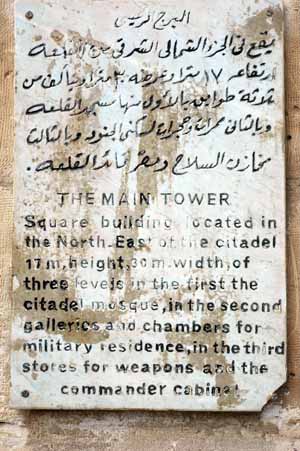 البرج الرئيسى
يقع فى الجزء الشمالى الشرقى من القلعة
ارتفاعه ١٧ مترا وعرضه ٣٠ مترا ويتألف من
ثلاثة طوابق بالأول منها مسجد القلعة
وبالثانى ممرات وحجرات لسكنى الجنود وبالثالث
مخازن السلاح ومقر قائد القلعه.
THE MAIN TOWER
Square building located in
the North.East of the citadel
17m,height,30m.width,of
three levels in the first the
citadel mosque,in the second
galleries and chambers for
military residence,in the third
stores for weapons and the
commander cabinat